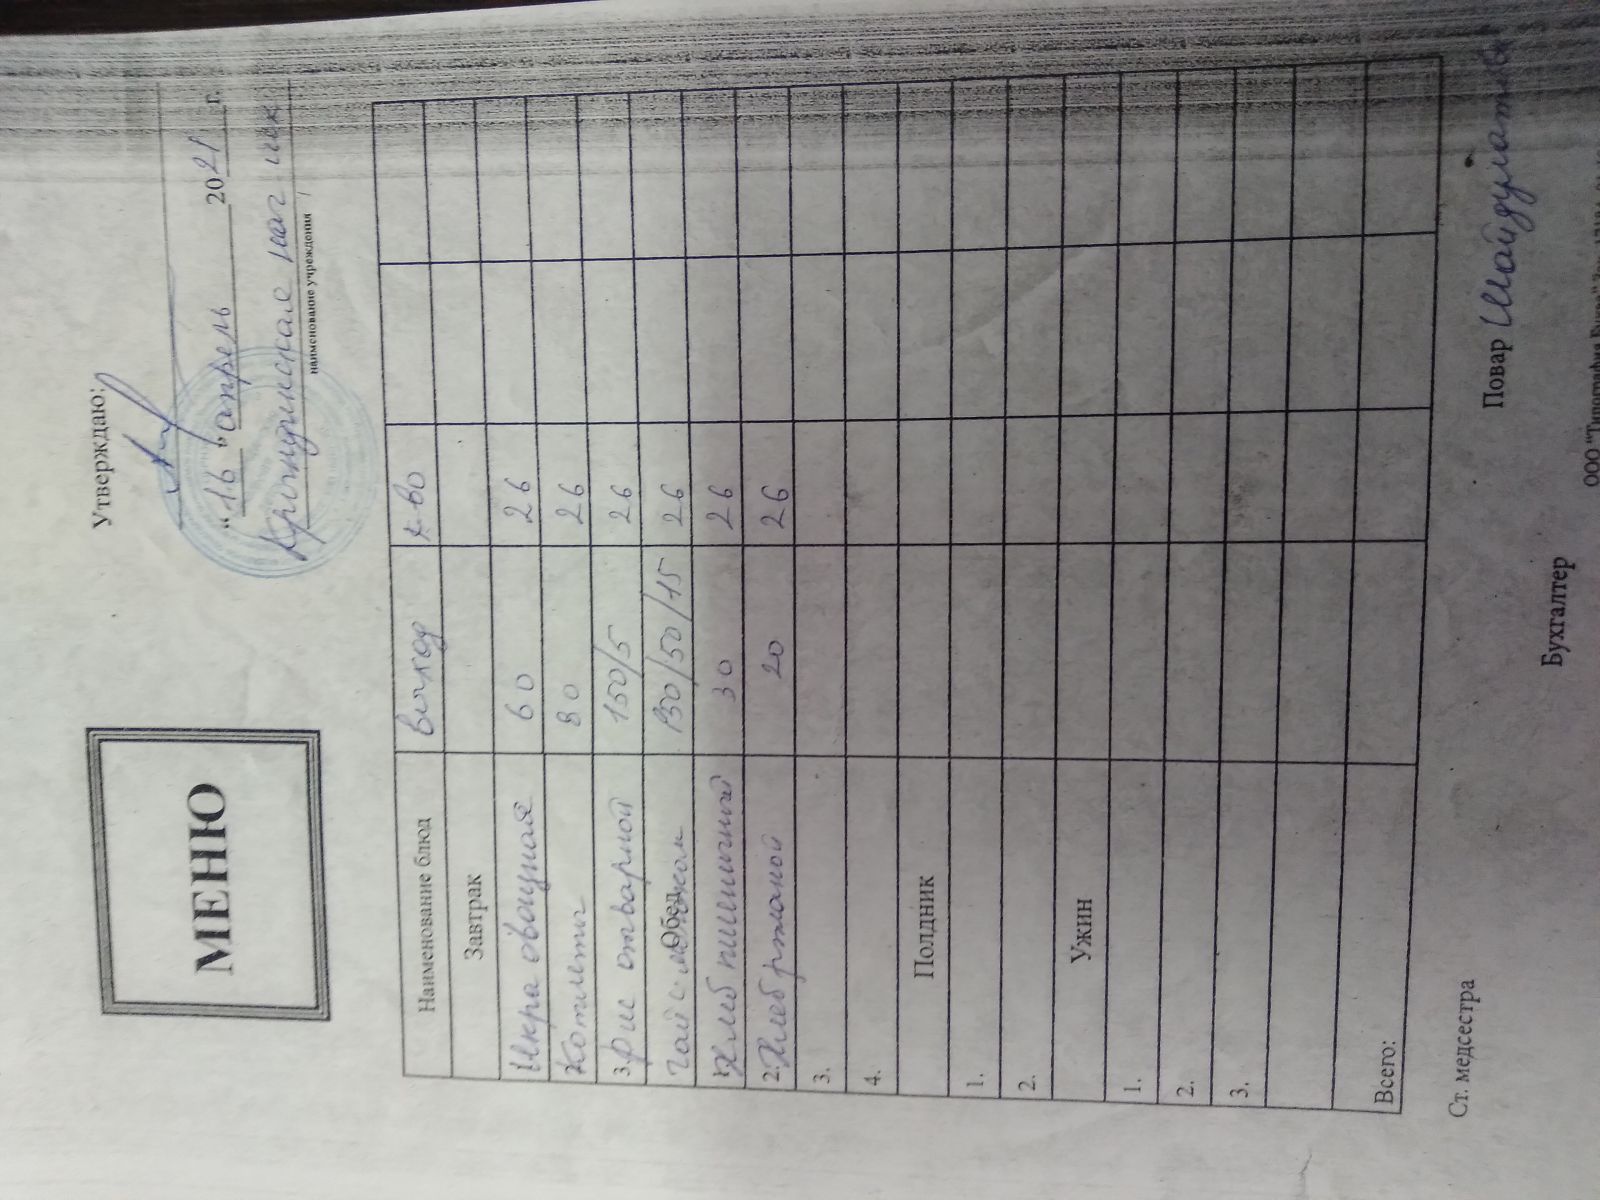 МЕНЮ
Утверждаю:
"16" апрель 2021 г.
нач шк
наименование учреждения
Наименование блюд выход к-во
Завтрак
Икра овощная 60 26
Котлеты 80 26
3. Рис отварной 150/5 26
Чай с Обед 150/50/15 26
1. Хлеб пшеничный 30 26
2. Хлеб ржаной 20 26
3.
4.
Полдник
1.
2.
Ужин
1.
2.
3.
Всего:
Ст. медсестра
Повар
Бухгалтер
ООО "Типография